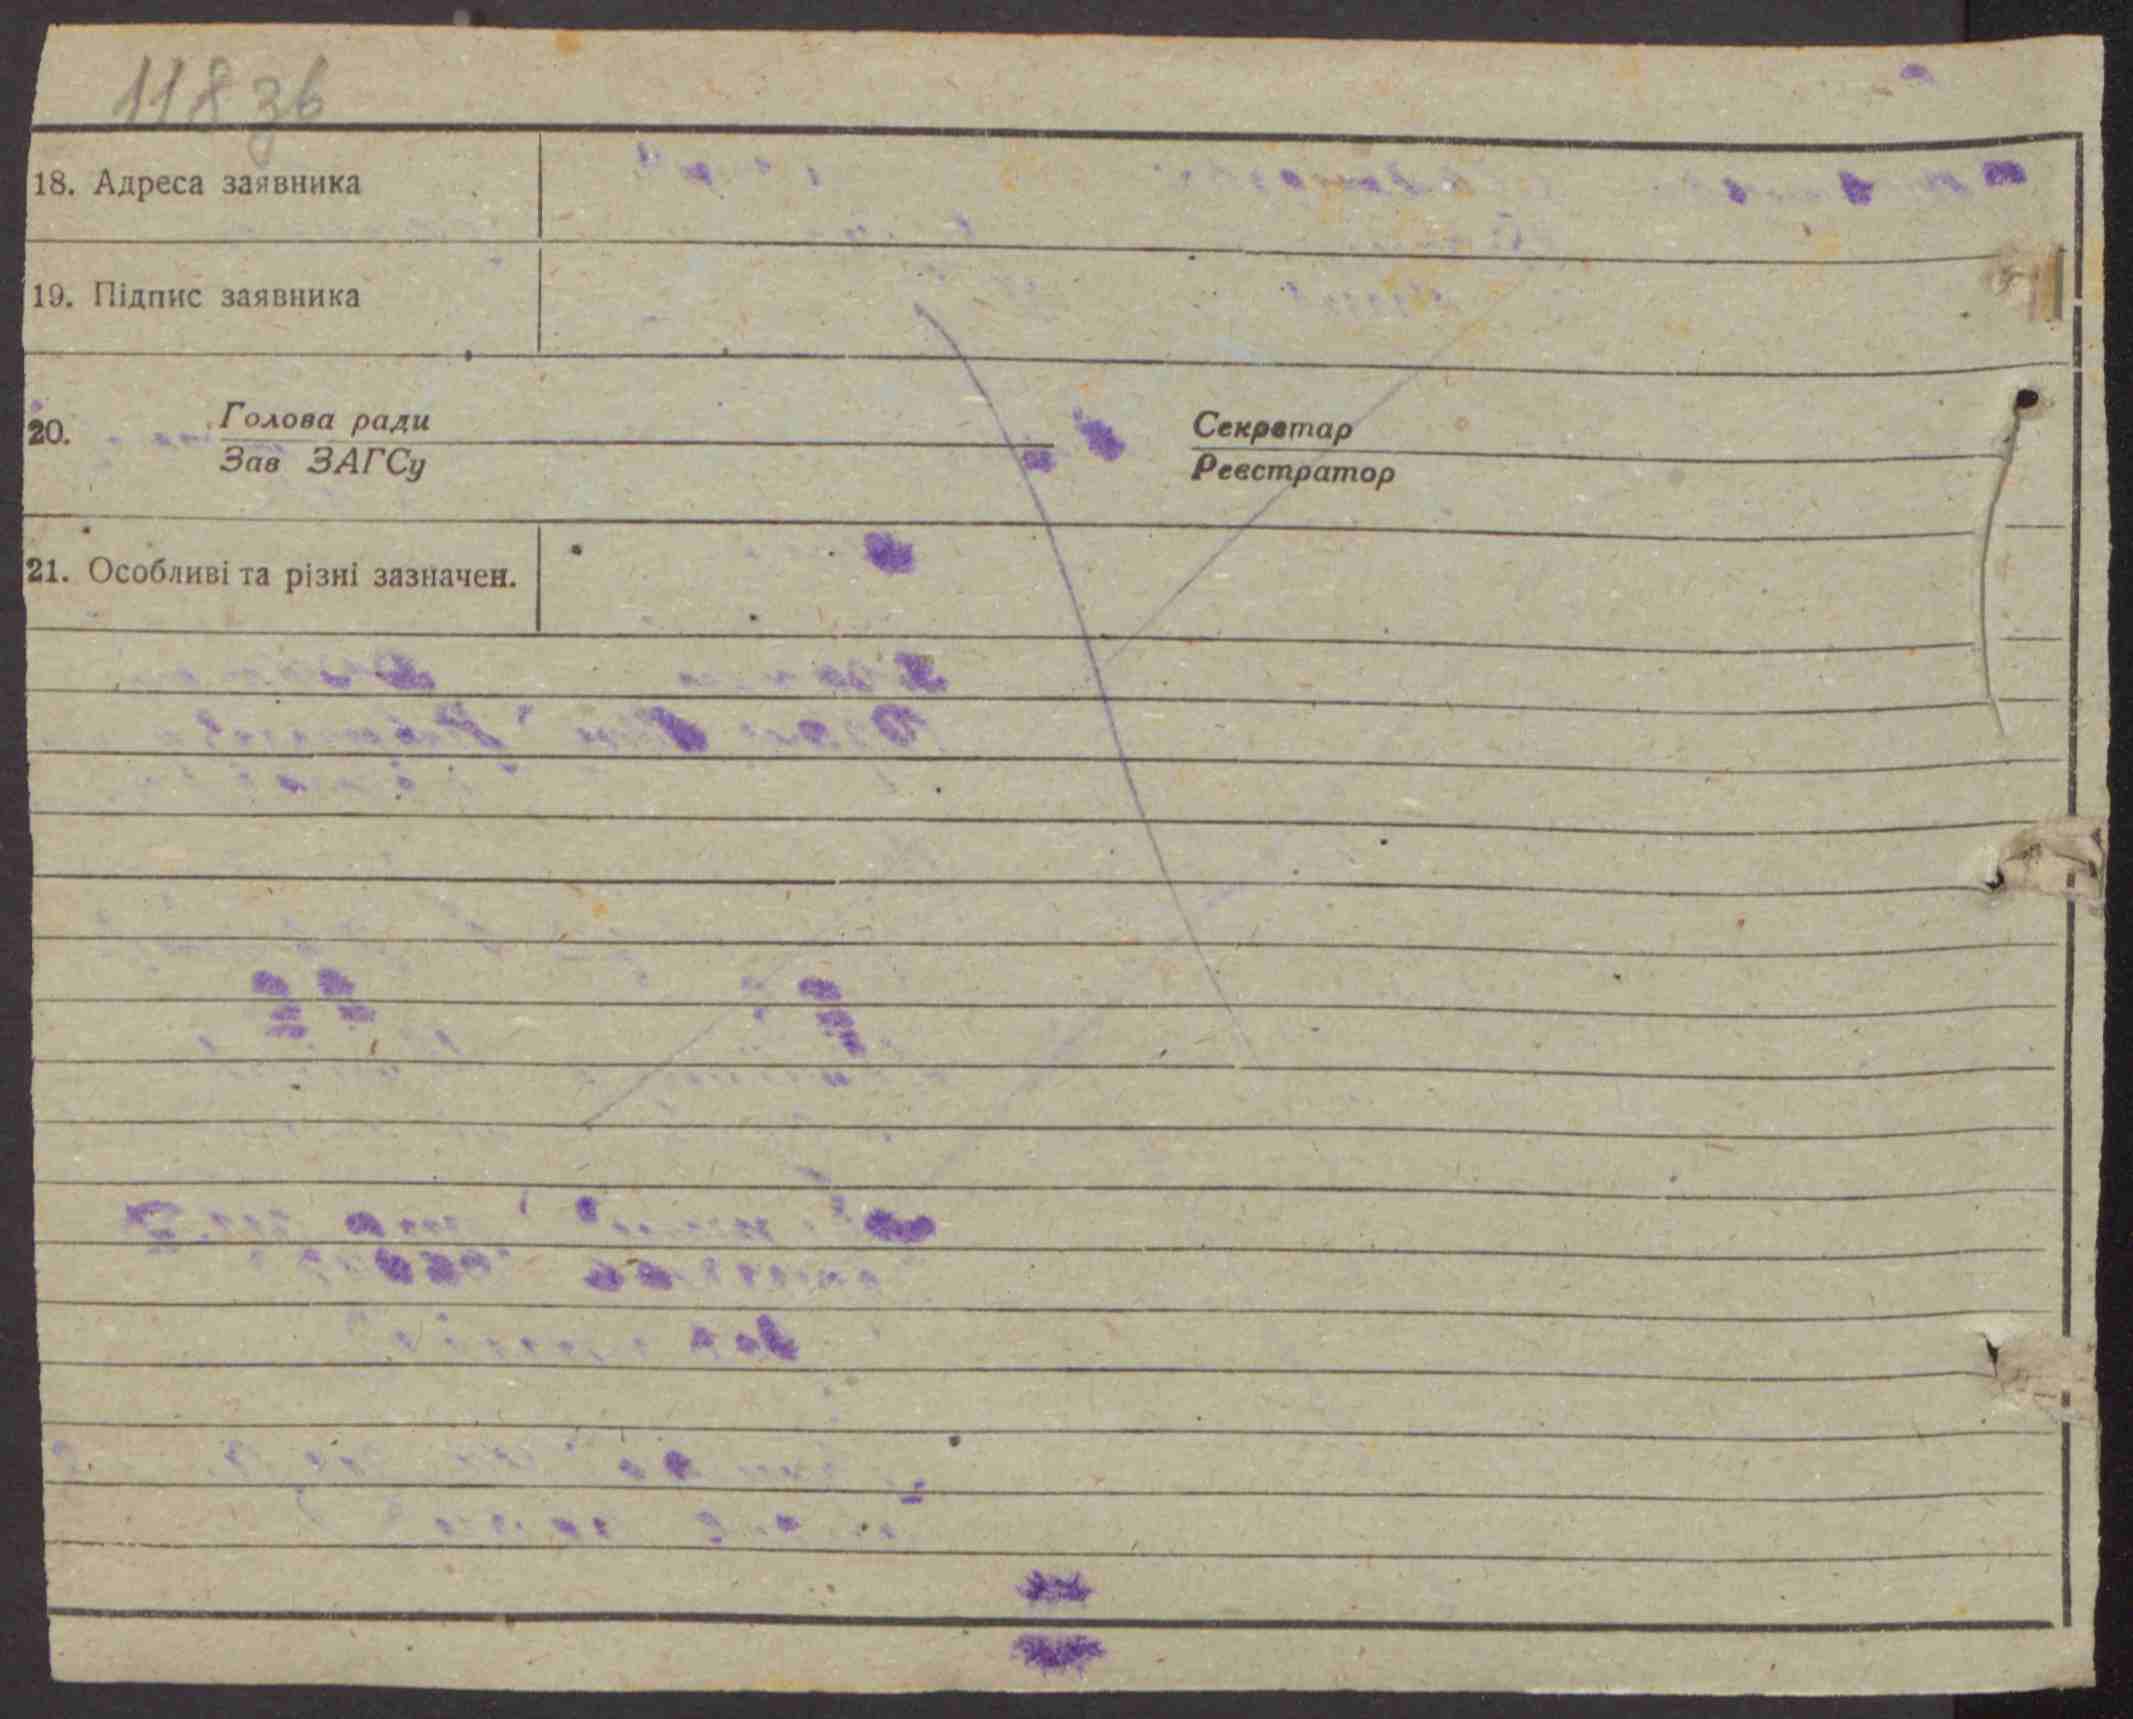 118 зв
18. Адреса заявника
19. Підпис заявника
20. Голова ради Секретар
Зав ЗАГСу Реєстратор
21. Особливі та різні зазначен.